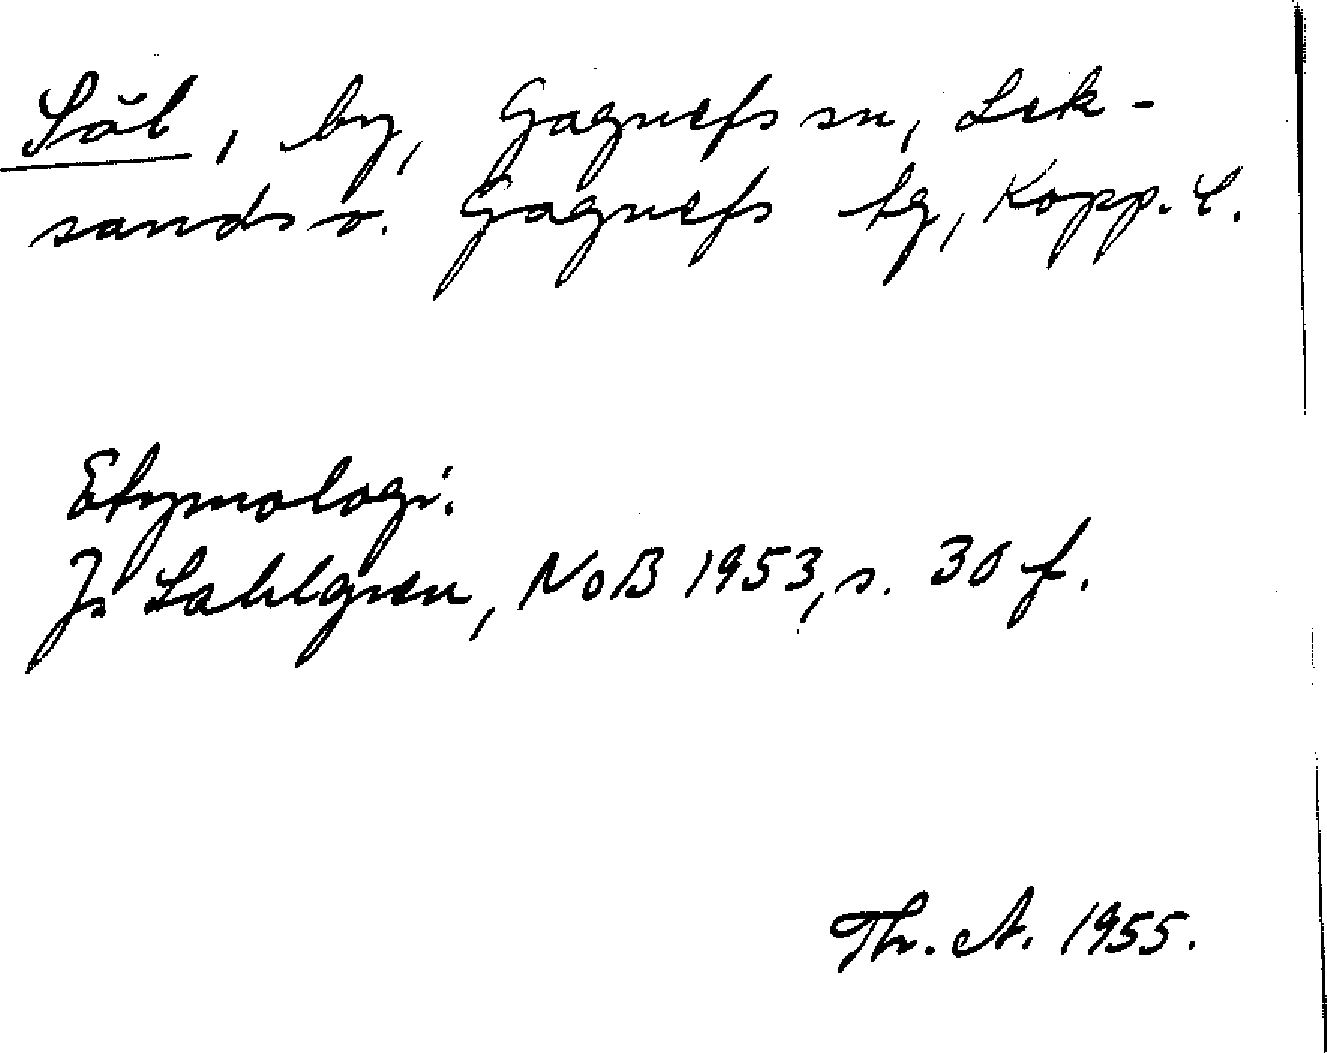 Såb, by, Gagnefs sn, Lek-
sands o. Gagnefs tg, Kopp. l.
Etymologi.
J. Sahlgren, NoB 1953, s. 30 f.
Th. A. 1955.